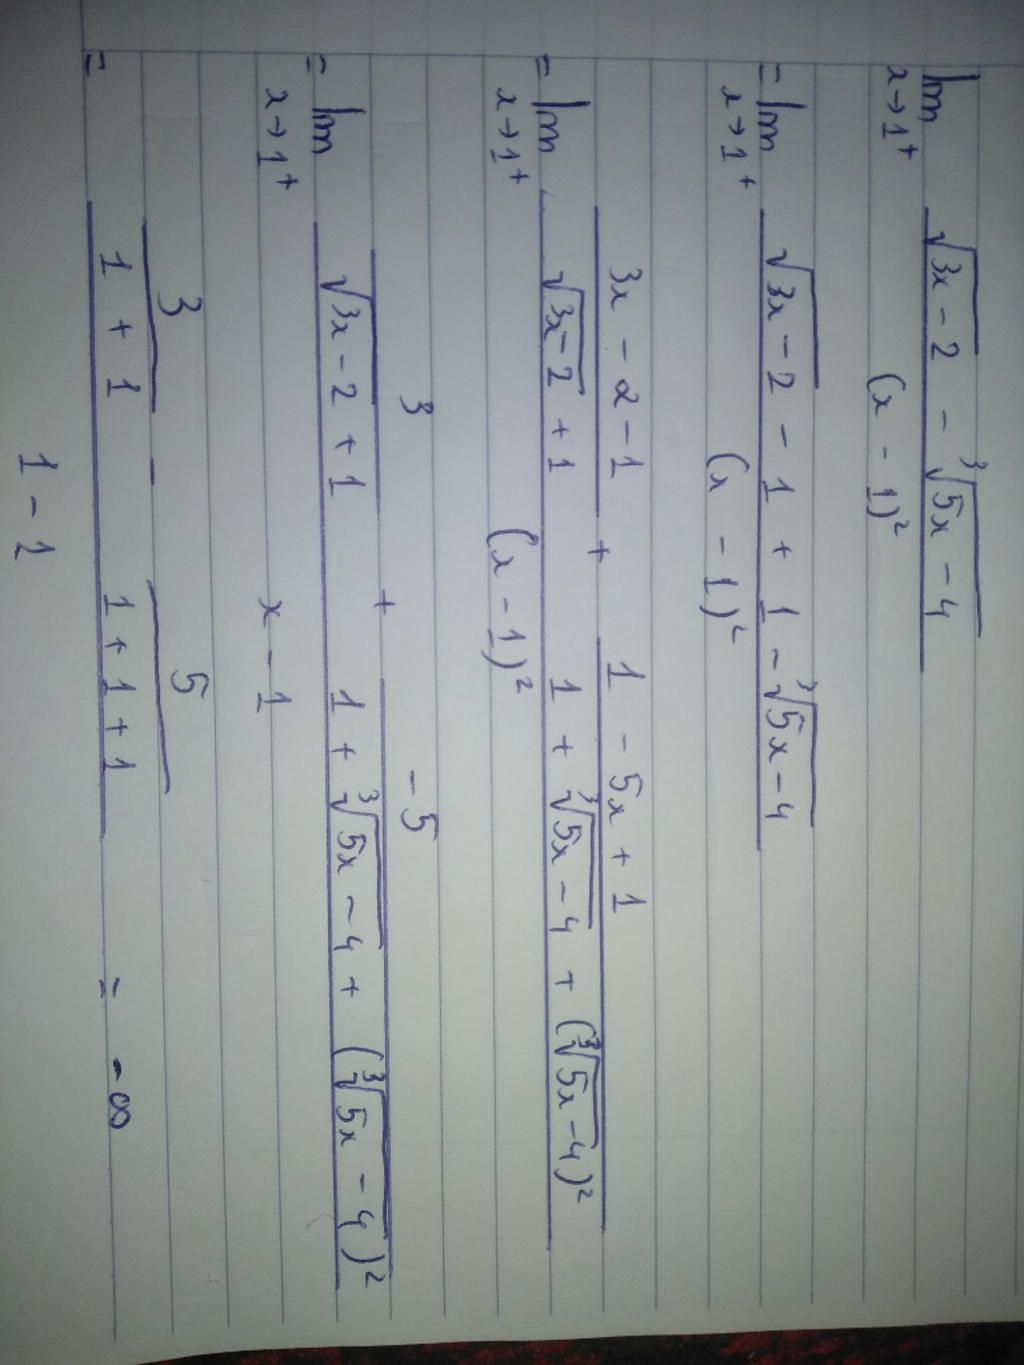 lim x→1⁺ (√(3x − 2) − ³√(5x − 4)) / (x − 1)²
= lim x→1⁺ (√(3x − 2) − 1 + 1 − ³√(5x − 4)) / (x − 1)²
= lim x→1⁺ ((3x − 2 − 1) / (√(3x − 2) + 1) + (1 − 5x + 1) / (1 + ³√(5x − 4) + (³√(5x − 4))²)) / (x − 1)²
= lim x→1⁺ (3 / (√(3x − 2) + 1) + −5 / (1 + ³√(5x − 4) + (³√(5x − 4))²)) / (x − 1)
= (3 / (1 + 1) − 5 / (1 + 1 + 1)) / (1 − 1) = −∞